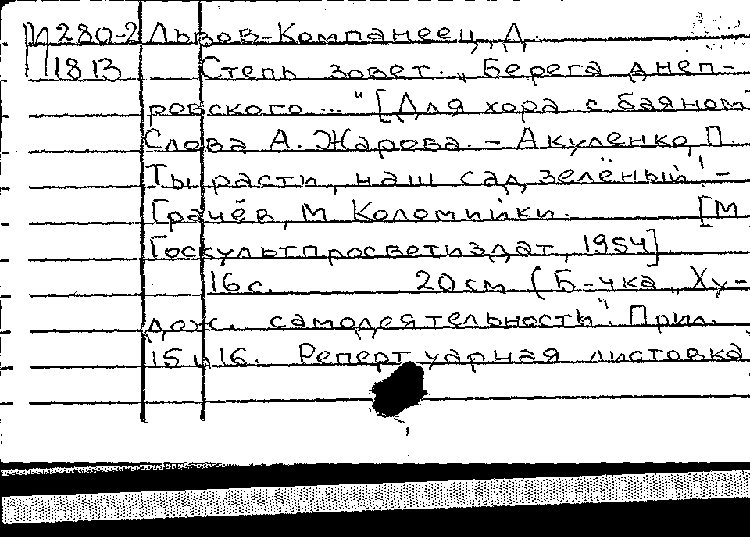 П280-2 Львов-Компанеец, Д.
1813 Степь зовет. „Берега днеп-
ровского ..." [Для хора с баяном
Слова А. Жарова. - Акуленко, П.
Ты расти, наш сад зелёный! -
Грачёв, М. Коломийки. [М.
Госкультпросветиздат, 1954]
16 с. 20 см (Б-чка „Ху-
дож. самодеятельность". Прил.
15 и 16. Репертуарная листовка